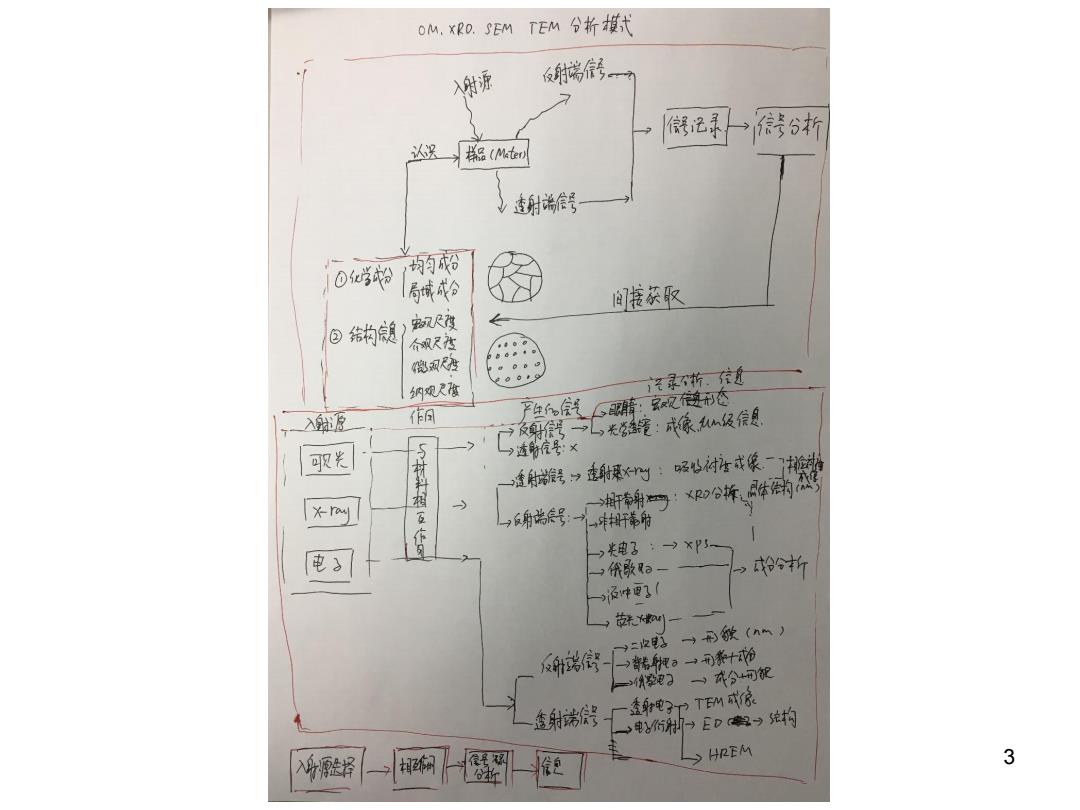 OM. XRD. SEM TEM 分析模式
入射源
反射端信号
信号记录
信号分析
认识
样品 (Mater)
透射端信号
①化学成分
均匀成分
局域成分
间接获取
② 结构信息
宏观尺度
介观尺度
微观尺度
纳观尺度
记录分析. 信息
入射源
作用
产生的信号
反射信号
眼睛: 宏观信息形态
光学透镜: 成像. 信息.
透射信号: x
可见光
与材料相互作用
透射端信号:
x-ray: 吸收衬度成像.
x-ray
反射端信号:
相干散射 : XRD分析, 晶体结构 (nm)
非相干散射
电子
光电子 : xps
俄歇电子
成分分析
反冲电子
荧光x-ray
反射端信号
二次电子
形貌 (nm)
背散射电子
形貌+成分
俄歇电子
成分+形貌
透射端信号
透射电子
TEM 成像
电子衍射
ED
结构
HREM
入射源选择
相互作用
信号记录分析
信息
3